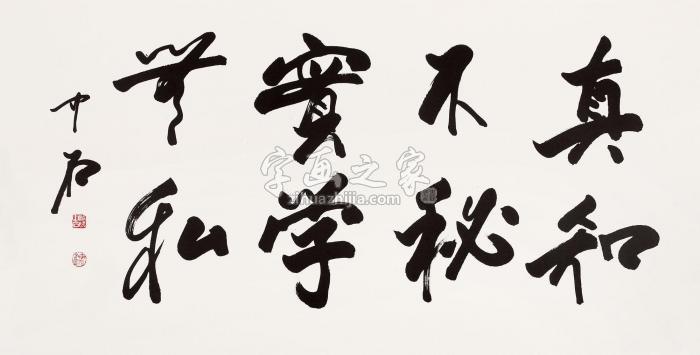 真知
不秘
實学
無私
中石
字画之家
zihuazhijia.com